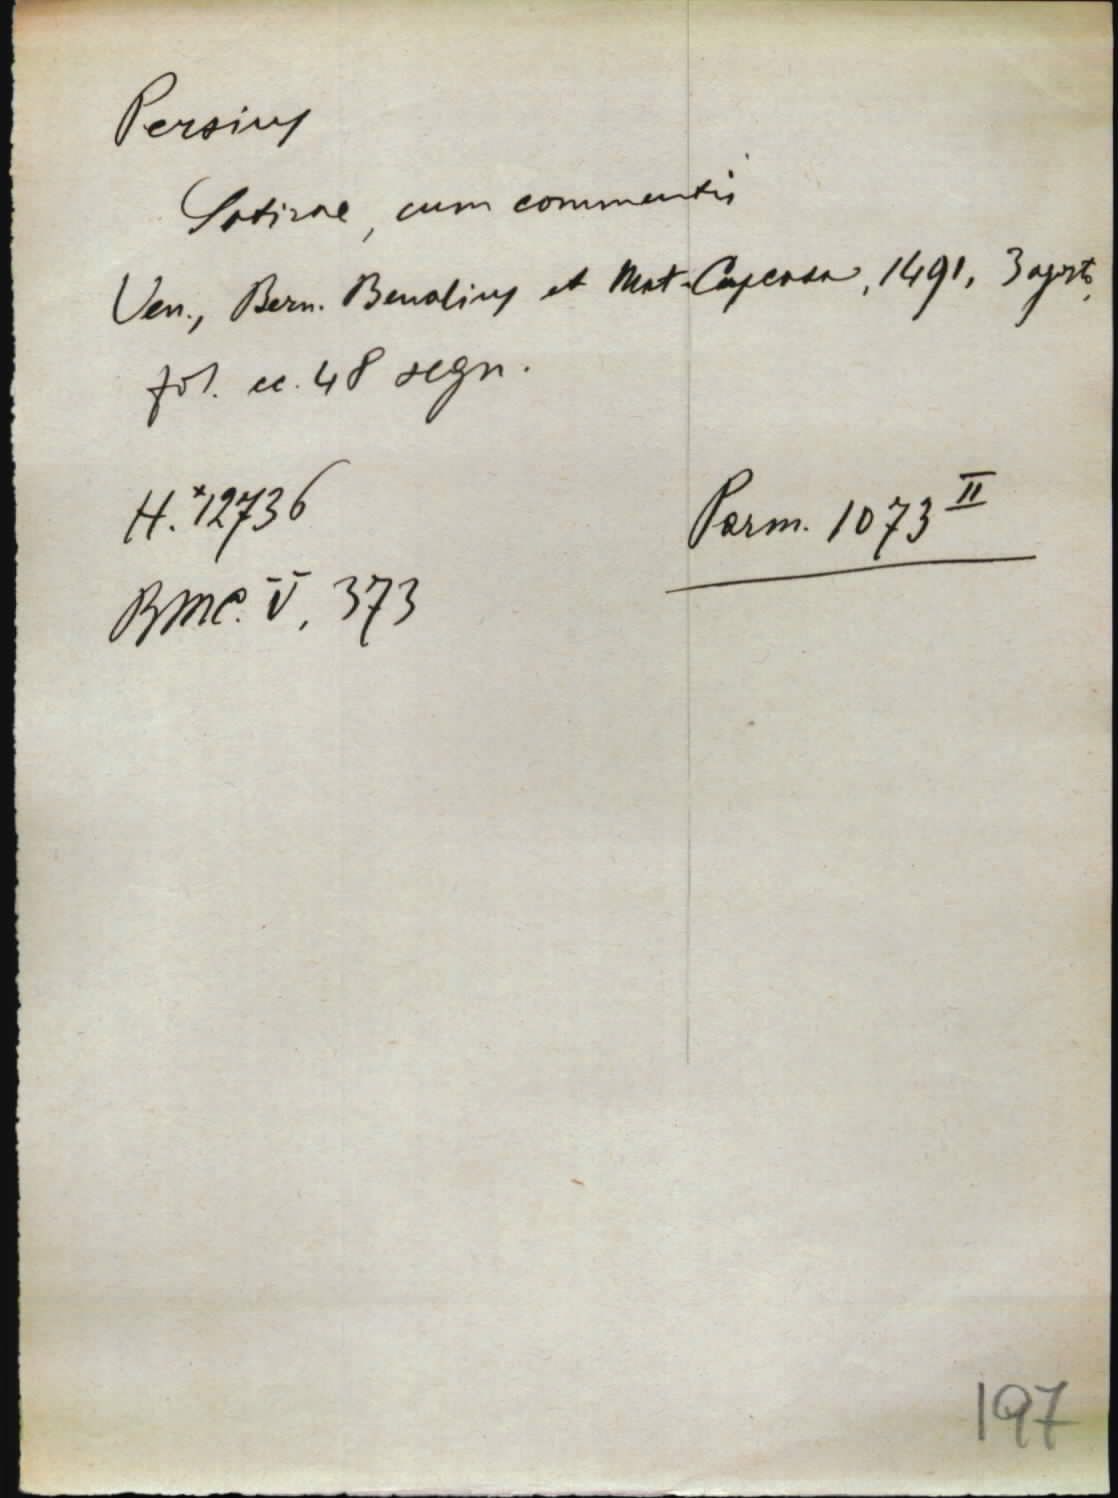 Persius
Satirae, cum commentis
Ven., Bern. Benalius et Mat. Capcasa, 1491, 3 agosto,
fol. cc. 48 segn.
H. *12736
Parm. 1073 II
BMC. V, 373
197